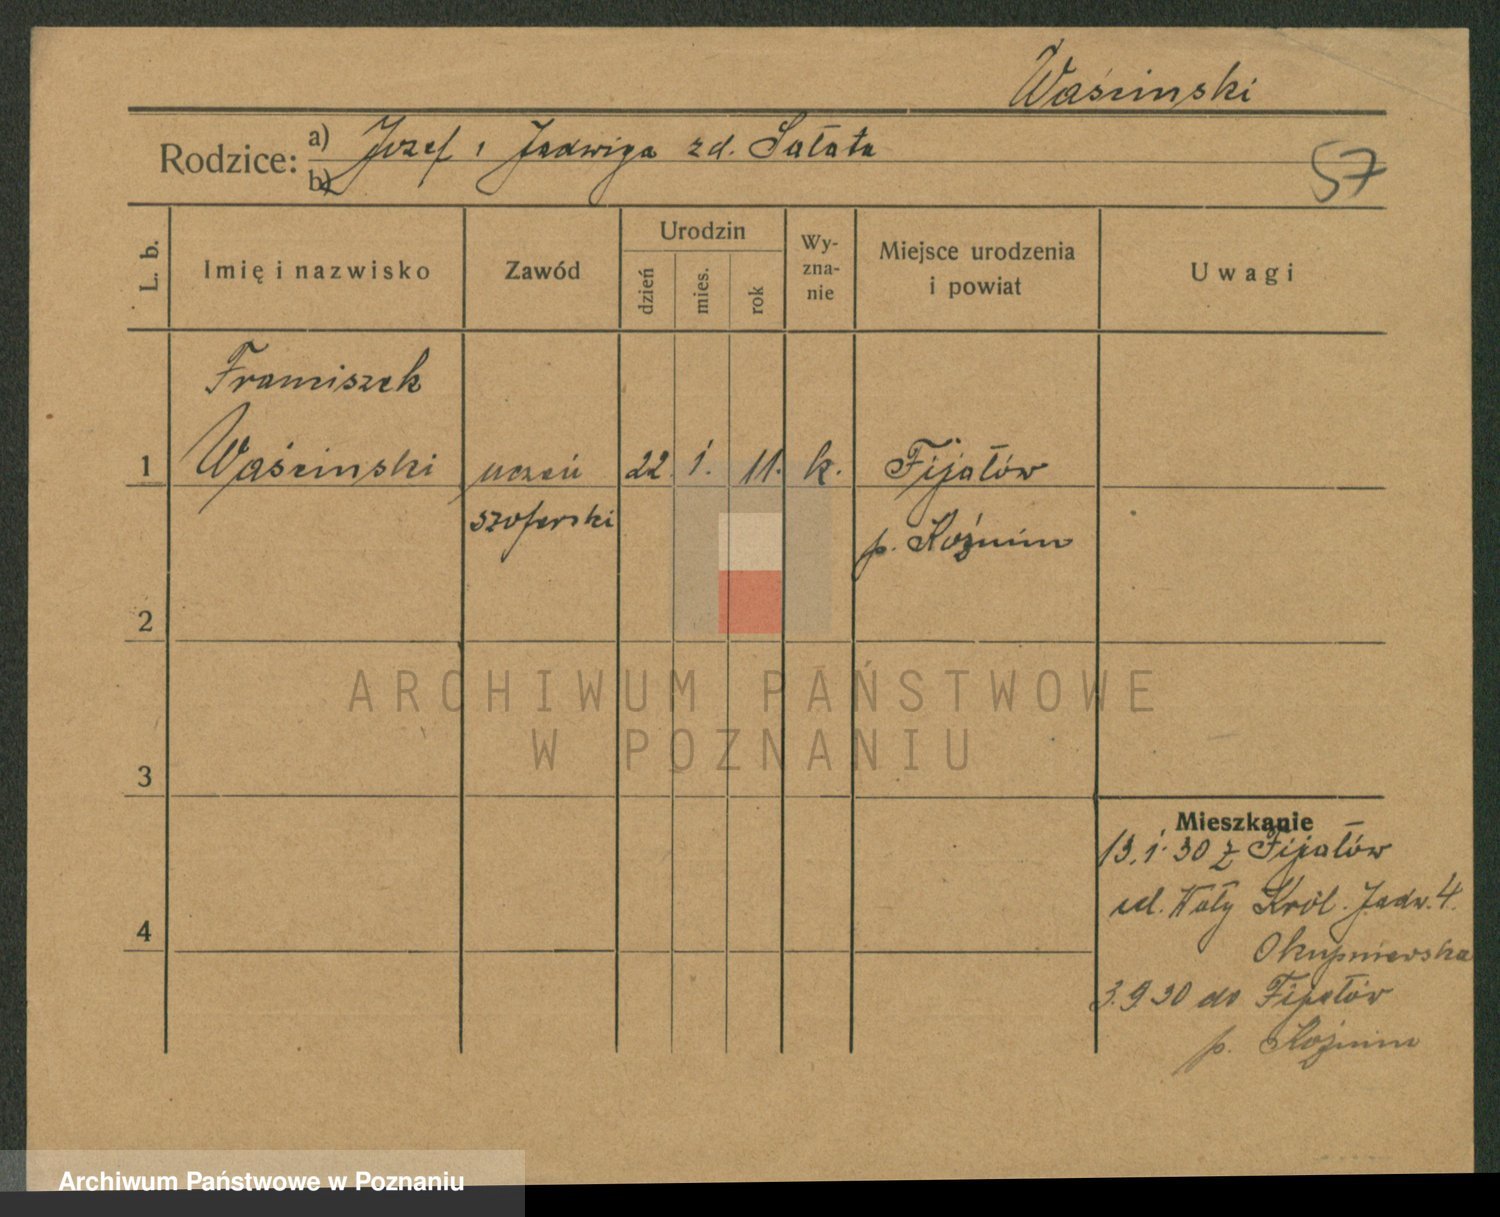 Waśsinski
Rodzice: a) Jozef i Jadwiga zd. Sałata
b)
57
L. b.
Imię i nazwisko
Zawód
Urodzin
dzień
mies.
rok
Wy-
zna-
nie
Miejsce urodzenia
i powiat
Uwagi
Franciszek
1 Waśsinski uczeń 22. 1. 11. k. Fijałów
szoferski p. Koźmin
2
3
Mieszkanie
13.1.30 z Fijałów
Król. Jadw. 4.
4
Okupniewska
3.9.30 do Fijałów
p. Koźmin
ARCHIWUM PAŃSTWOWE
W POZNANIU
Archiwum Państwowe w Poznaniu